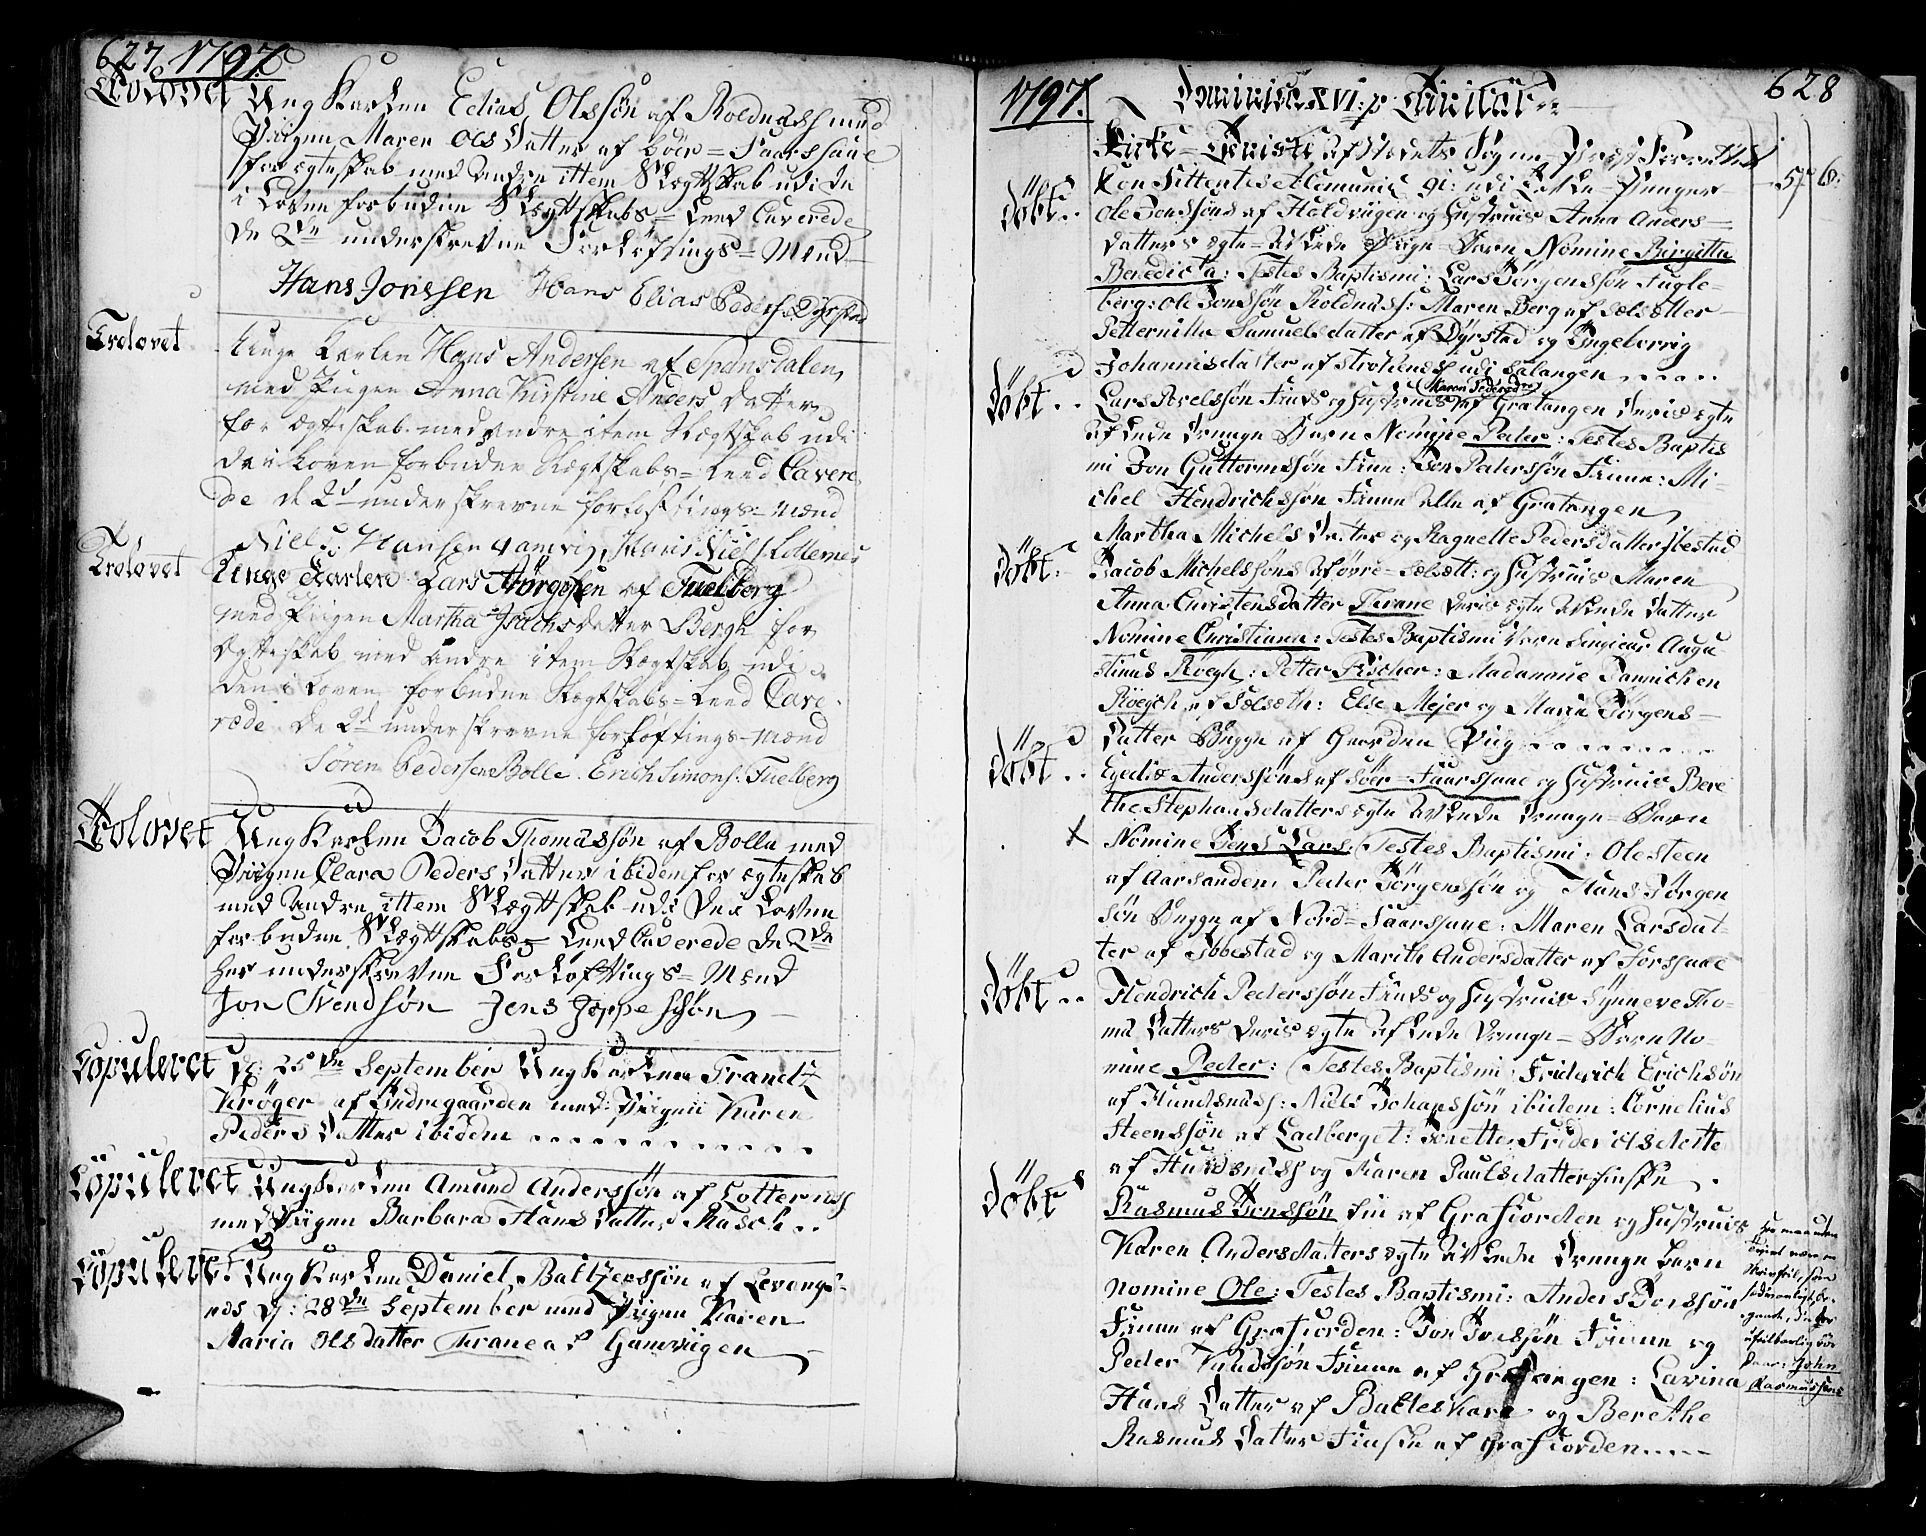 627. 1797.
Trolovet Ung Karlen Elias Olssøn af Roldnæss med
Piigen Maren Ols Datter af Søer=Faarssaue
for ægteskab med andre ittem Slægtskab udi de
i Loven forbudne Slægtskabs=Leed Caverede
de 2de underskrevne Forløftings=Mænd
Hans Jonssen Hans Elias Peders: Dyrstad
Trolovet
Unge Karlen Hans Andersen af Spansdalen,
med Piigen Anna Kirstine Anders datter
for Ægteskab med andre item Slægtskab udi
de i Loven forbudne Slægtskabs=Leed Cavere
de de 2de underskrevne forløftings=mænd
Niels Hansen Hans Niels
Trolovet Unge Karlen Lars Jørgensen af Fuelberg
med Piigen Martha Isachsdatter Bergh for
Ægteskab med andre item Slægtskab udi
den i Loven forbudne Slægtskabs=Leed Cave
rede de 2de underskrevne forløftings=mænd
Søren Pedersen Bolle. Erich Simons: Fuelberg
Trolovet Ung Karlen Jacob Thomassøn af Bolle med
Piigen Clara Peders Datter ibidem for ægteskab
med andre ittem Slægtskab udi de i Loven
forbudne Slægtskabs=Leed Caverede de 2de
her underskrevne Forløftings=Mænd
Jon Svendsøn Jens Jeppesøn
Copuleret d: 25de September Ung Karlen Frandtz
Krøger af Indregaarden med Piigen Karen
Peders Datter ibidem
Copuleret Ung Karlen Amund Anderssøn af Lotternæs
med Piigen Barbara Hans Datter Rasch
Copuleret Ung Karlen Daniel Baltzerssøn af Levangs-
næs d: 28de September med Piigen Karen
Maria Olsdatter Trane af Gamvigen
1797. Dominica XVI. p. Trinitat: 628
Kirke=Tieniste af Stedets Sogne Præst Forrettet
5. 6.
døbt
Ole Jonssøns af Holdviigen og Hustrues Anna Anders=
datters ægte=avlede Piige=Barn Nomine Birgitta
Benedicta: Testes Baptismi: Lars Jørgenssøn Fugle-
berg: Ole Jonssøn Roldnæss: Maren Berg af Sælsætter
Petternilla Samuelsdatter af Dyrstad og Ingeborrig
Johannisdatter af Strohnæss udi Salangen
døbt (Karen Pedersd:)
Lars Joelssøn Finds og Hustrues af Gratangen deris ægte
avlede drenge Barn Nomine Peder: Testes Baptis
mi Jon Guttormssøn Finn: Jon Peterssøn Finne: Mi-
chel Hendrichssøn Finne alle af Gratangen
Martha Michels Datter og Ragnelle Pedersdatter Ibestad
døbt Jacob Michelssøns af øvre=Sælsætt: og Hustrues Maren
Anna Christensdatter Trane deris ægte avlede datter
Nomine Christiana: Testes Baptismi Augu-
stinus Røegh: Petter Fischer: Madamme
Røegh af Sælsæth: Else Mejer og Maria Jørgens=
datter Bygge af Gaarden Vÿg
døbt Egedio Anderssøns af Søer=Faarssaue og Hustrues Bere
the Stephansdatters ægte avlede drenge=Barn
Nomine Jens Lars: Testes Baptismi: Ole Steen
af Aarsanden: Peder Jørgenssøn og Hans Jørgen
søn Bygge af Nord=Faarssaue: Maren Larsdat-
ter af Ibbestad og Marith Andersdatter af Forssaae
døbt Hendrich Pederssøn Finds og Hustrues Synneve Tho-
ma datters deris ægte avlede drenge=Barn No-
mine Peder: Testes Baptismi: Friderich Erichsøn
af Hundsnæss: Niels Johanssøn ibidem: Cornelius
Steenssøn af Ladberget: Jonette Friderichsdatte
af Hundsnæss og Karen Paulsdatter finske
døbt Rasmus Jonssøn fin af Grafiorden og Hustrues
Karen Andersdatters ægte avlede drenge barn
nomine Ole: Testes Baptismi: Anders Joenssøn
Finne af Grafiorden: Jon Joenssøn Finne og
Peder Knudssøn Finne af Gratangen: Lavina
Hans Datter af Balteskare og Berethe
Rasmus Datter Finske af Grafiorden
John
Rasmussøns